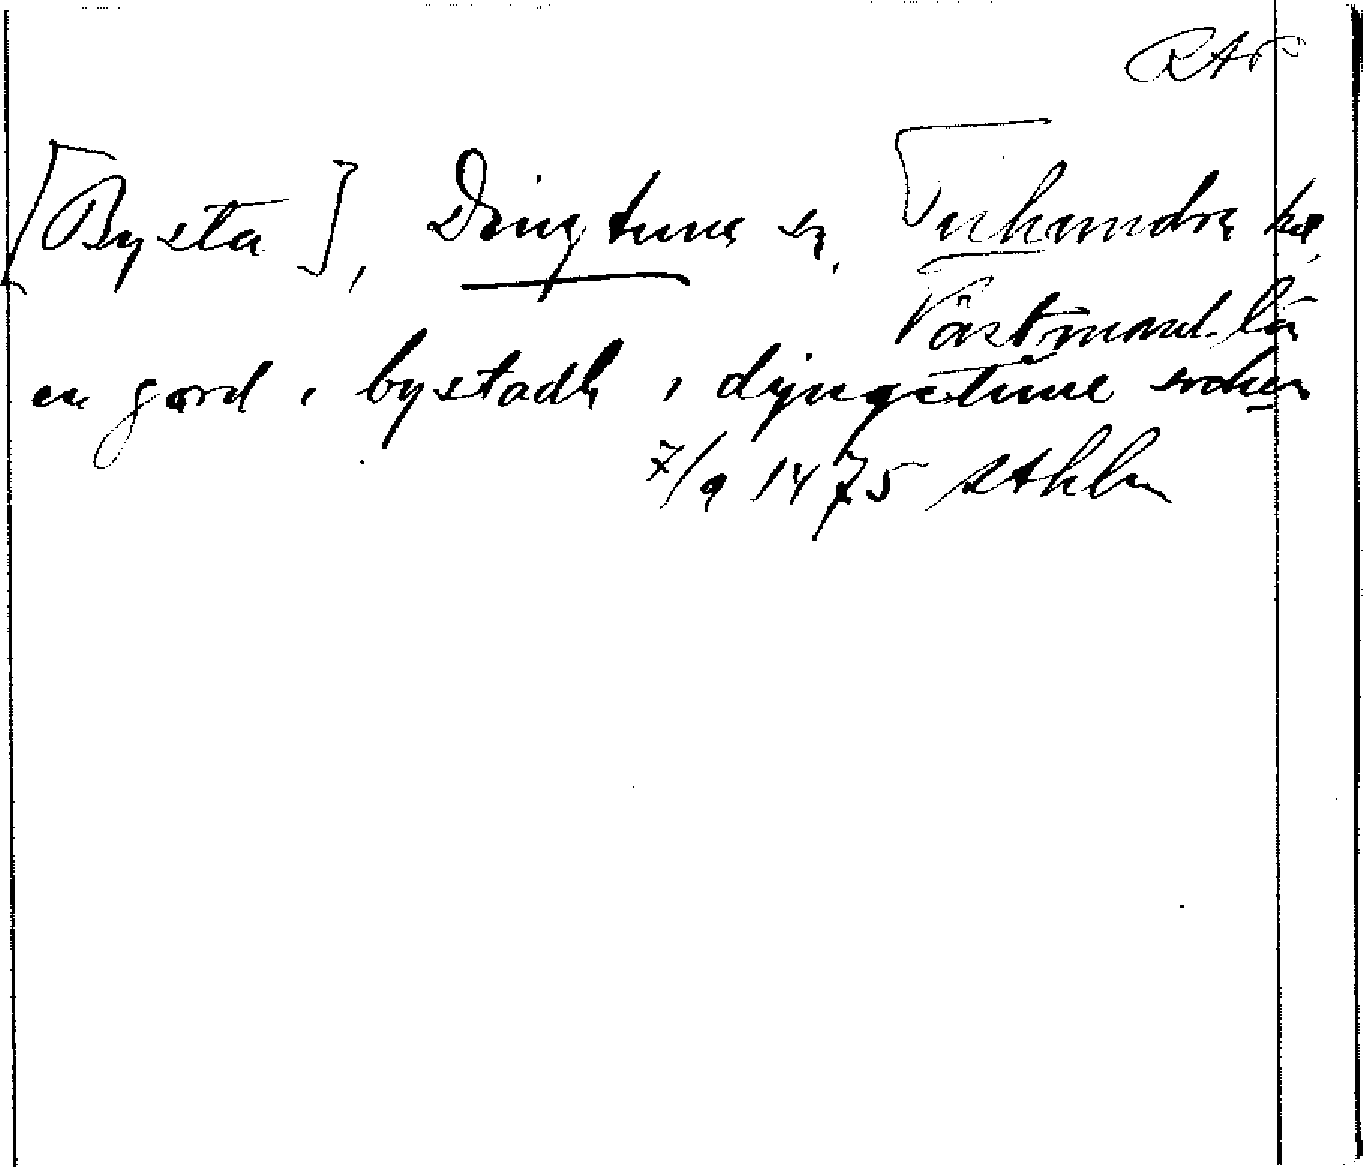 RAP
[Bysta], Dingtuna sn, Tuhundra hd,
Västmanl. län
en gard i bystadh i dyngetune sokn
7/9 1475 Sthlm